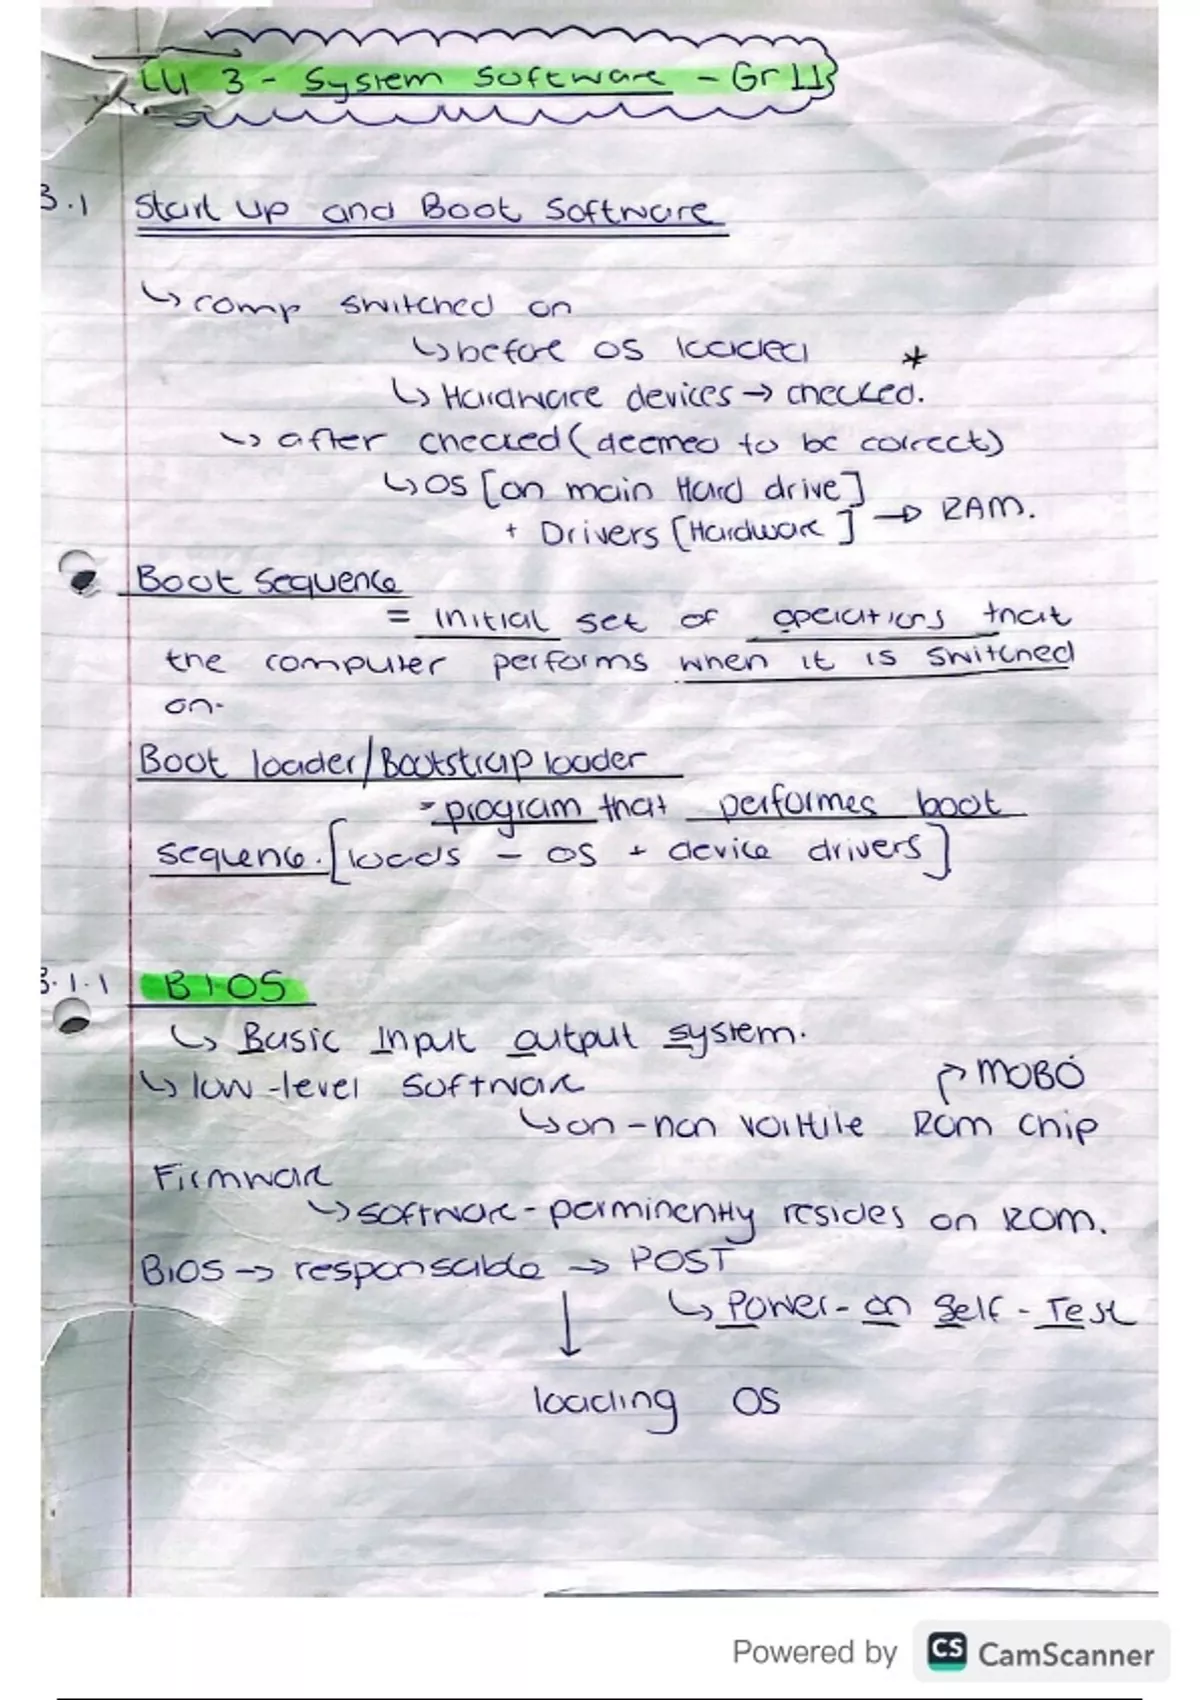 LU 3 - System Software - Gr 11
3.1 Start up and Boot Software
↳ comp switched on
↳ before OS loaded *
↳ Hardware devices → checked.
↳ after checked (deemed to be correct)
↳ OS [on main Hard drive]
+ Drivers [Hardware] → RAM.
Boot Sequence
= initial set of operations that
the computer performs when it is switched
on.
Boot loader/Bootstrap loader
- program that performes boot
sequence. [loads - OS + device drivers]
3.1.1 BIOS
↳ Basic Input output system.
↳ low-level software ↱ MOBO
↳ on - non voltile ROM chip
Firmware
↳ software - perminently resides on ROM.
BIOS → responsable → POST
↳ Power- on Self - Test
↓
loading OS
Powered by CS CamScanner